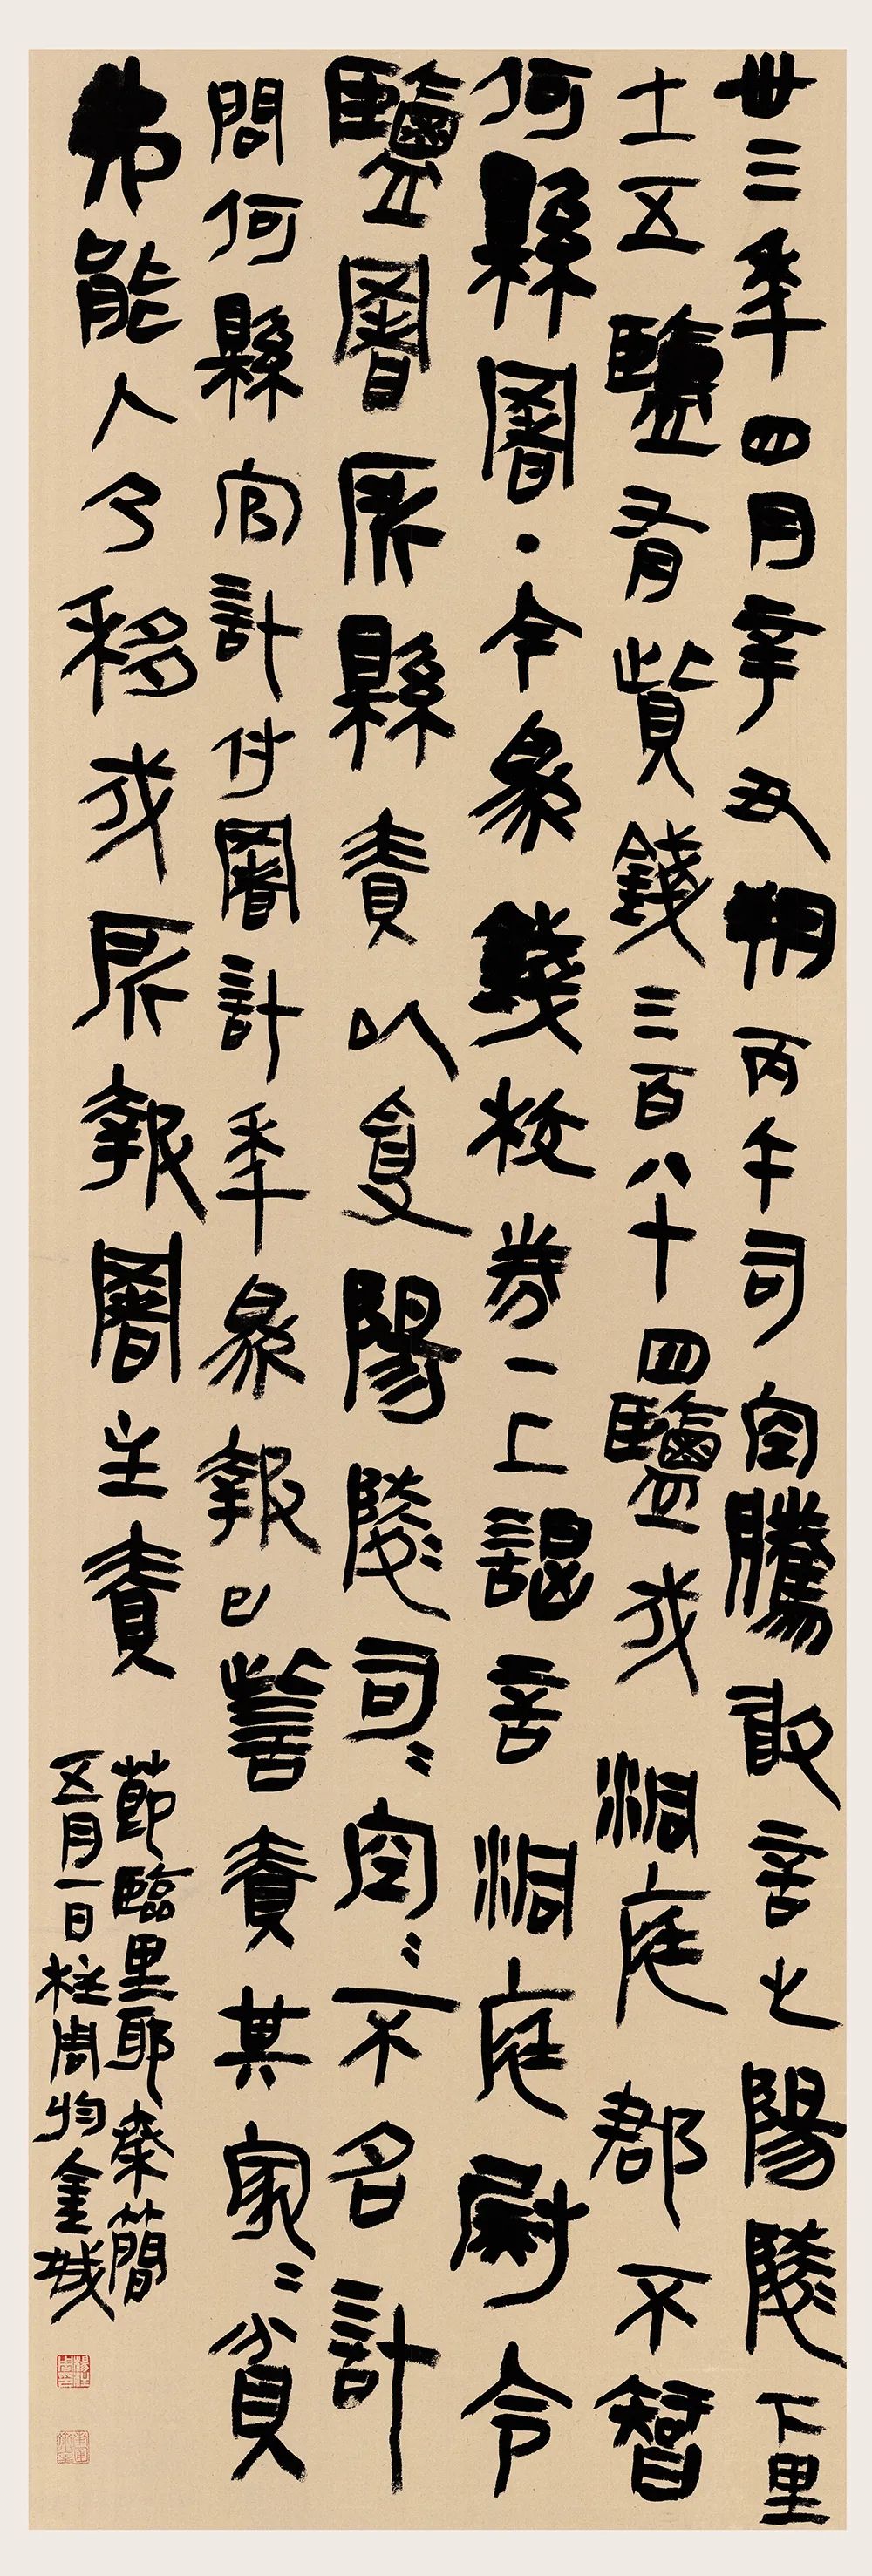 卅三年四月辛丑朔丙午司空騰敢言之陽陵下里
士五鹽有貲錢三百八十四鹽戍洞庭郡不智
何縣署·今為錢校券一上謁言洞庭尉令
鹽署所縣責以受陽陵司〻空〻不名計
問何縣官計付署計年為報已訾責其家〻貧
弗能入乃移戍所報署主責
節臨里耶秦簡
五月一日柱周於金城